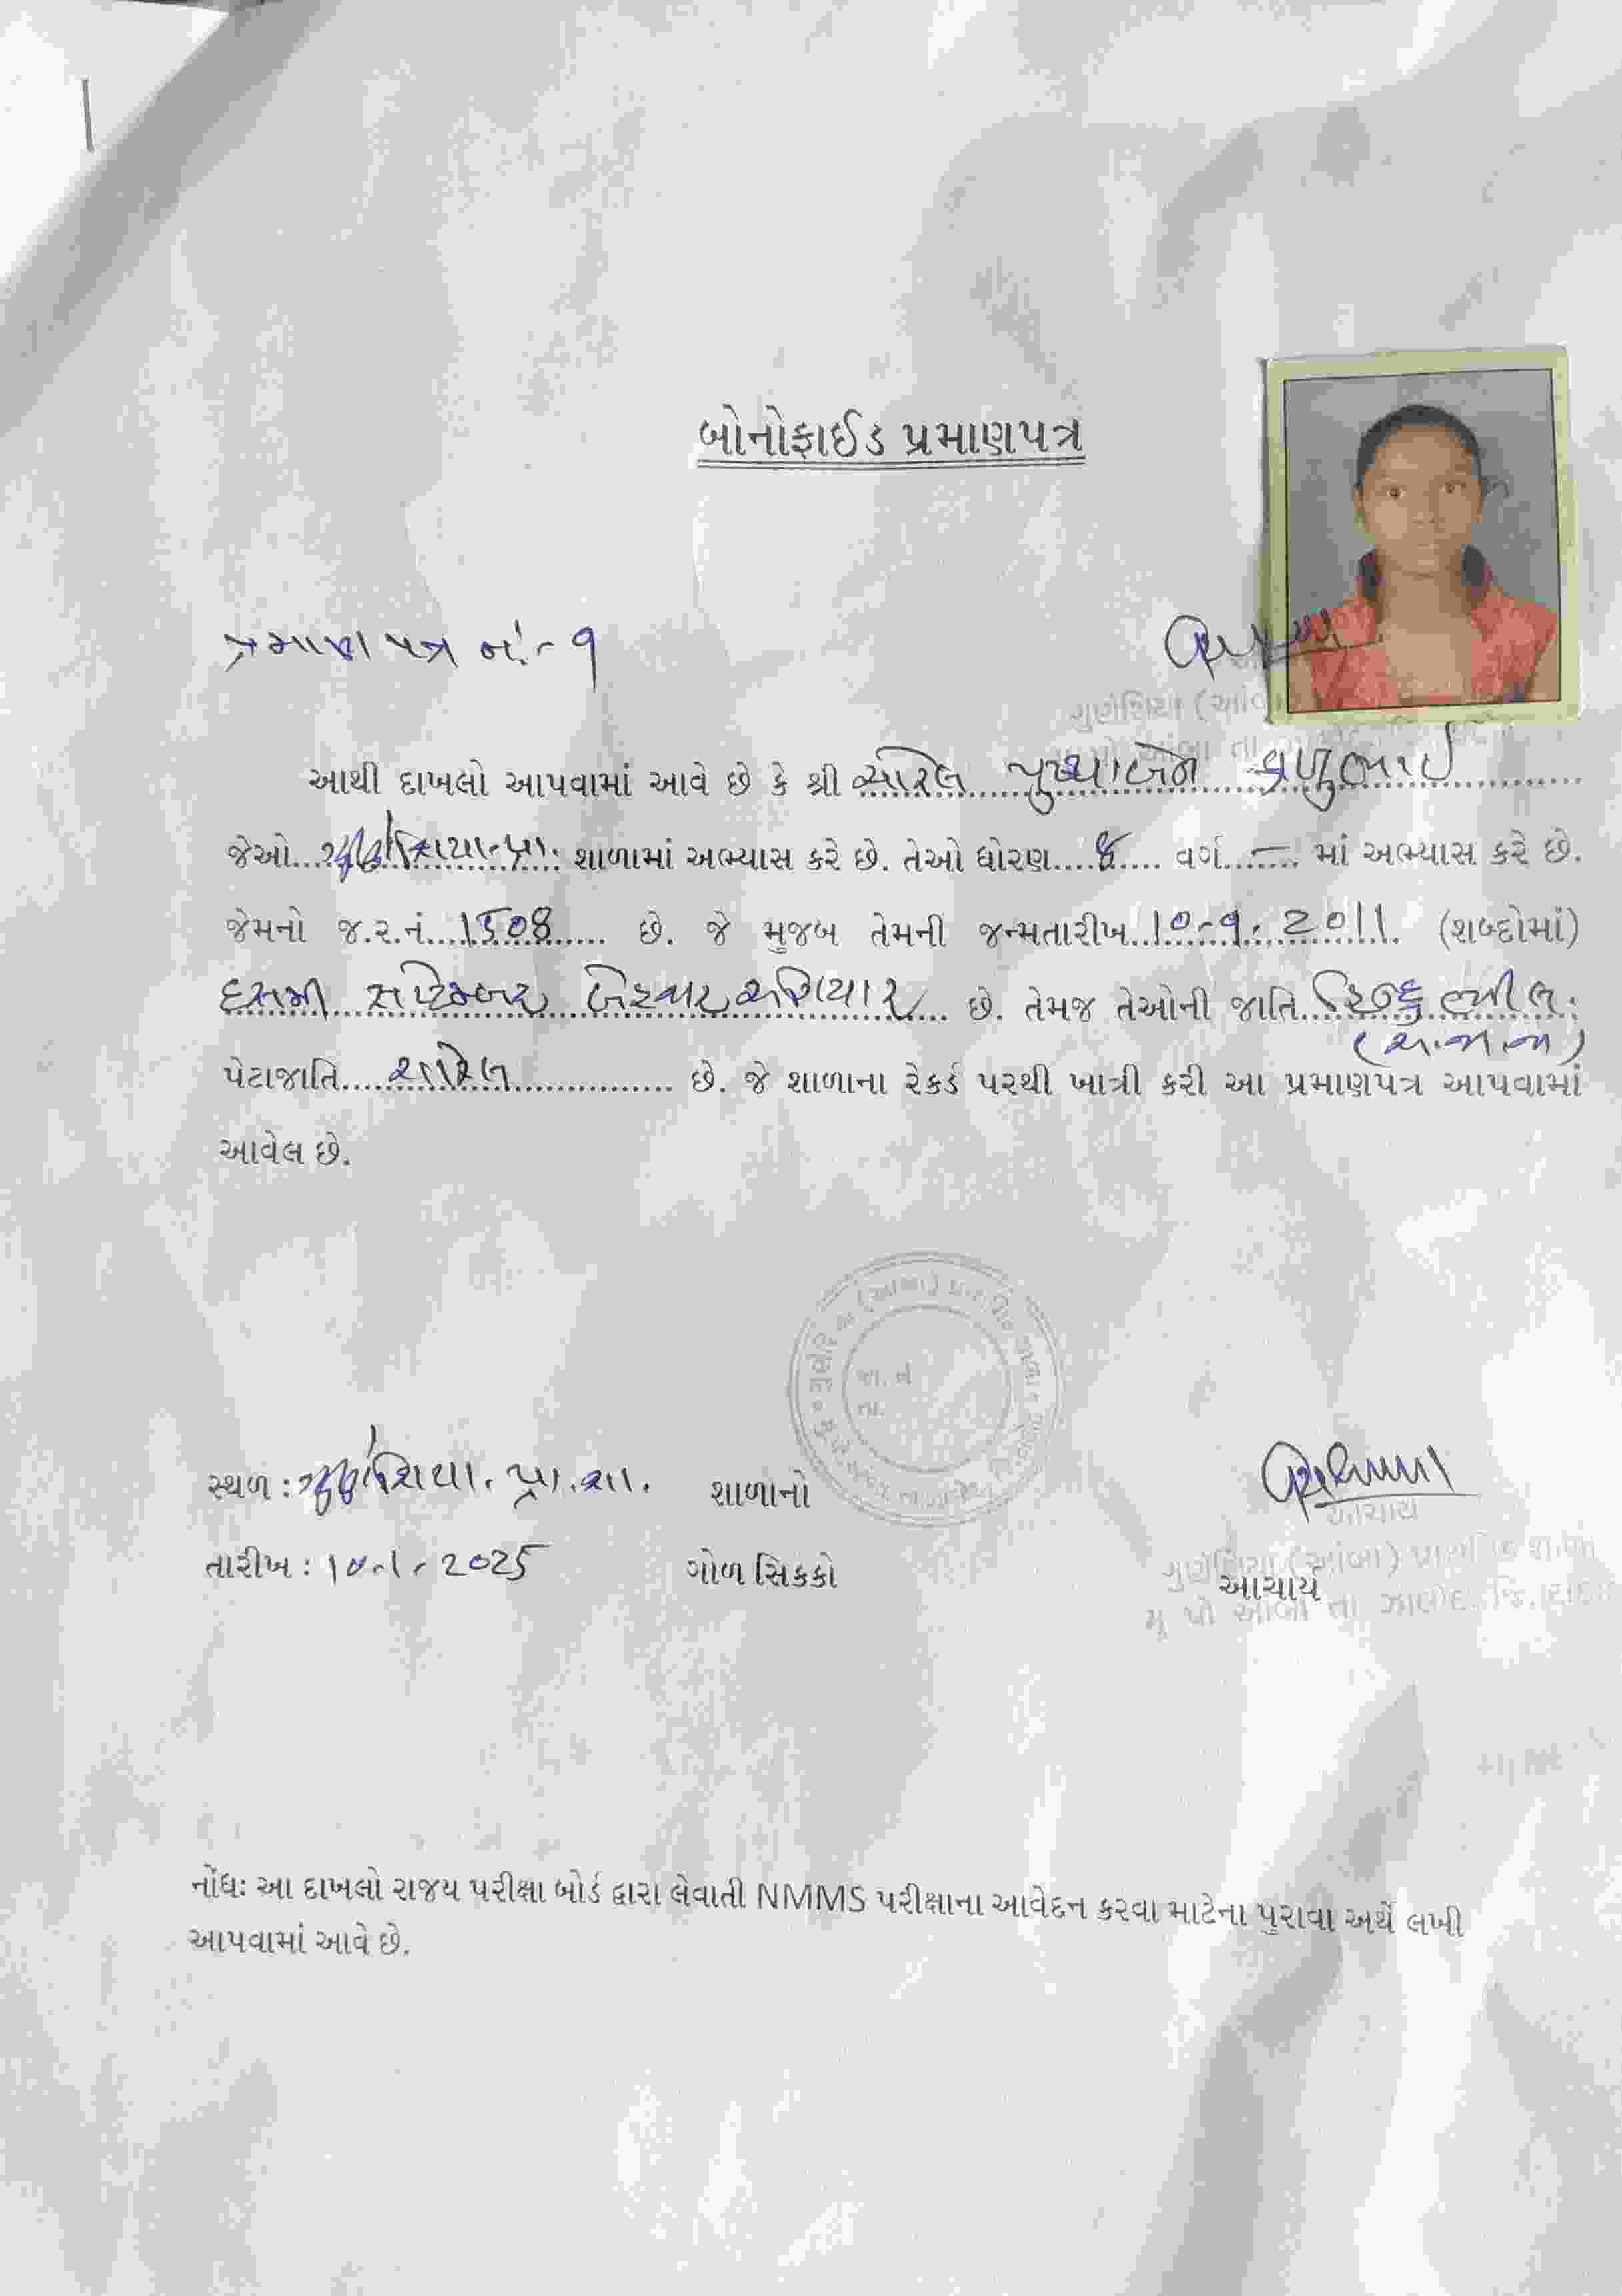 બોનોફાઈડ પ્રમાણપત્ર
પ્રમાણ પત્ર નં:- ૧
આથી દાખલો આપવામાં આવે છે કે શ્રી પુષ્પાબેન
જેઓ... શાળામાં અભ્યાસ કરે છે. તેઓ ધોરણ.... ૮ .... વર્ગ.... - .... માં અભ્યાસ કરે છે.
જેમનો જ.ર.નં.... 1508 .... છે. જે મુજબ તેમની જન્મતારીખ... 10-9-2011. (શબ્દોમાં)
દસમી સપ્ટેમ્બર બેહજાર અગિયાર ... છે. તેમજ તેઓની જાતિ... હિન્દુ ભીલ.
(અ.જ.જ)
પેટાજાતિ.... .... છે. જે શાળાના રેકર્ડ પરથી ખાત્રી કરી આ પ્રમાણપત્ર આપવામાં
આવેલ છે.
સ્થળ : પ્રા.શા. શાળાનો
તારીખ : 10-1-2025 ગોળ સિકકો
આચાર્ય
નોંધઃ આ દાખલો રાજય પરીક્ષા બોર્ડ દ્વારા લેવાતી NMMS પરીક્ષાના આવેદન કરવા માટેના પુરાવા અર્થે લખી
આપવામાં આવે છે.